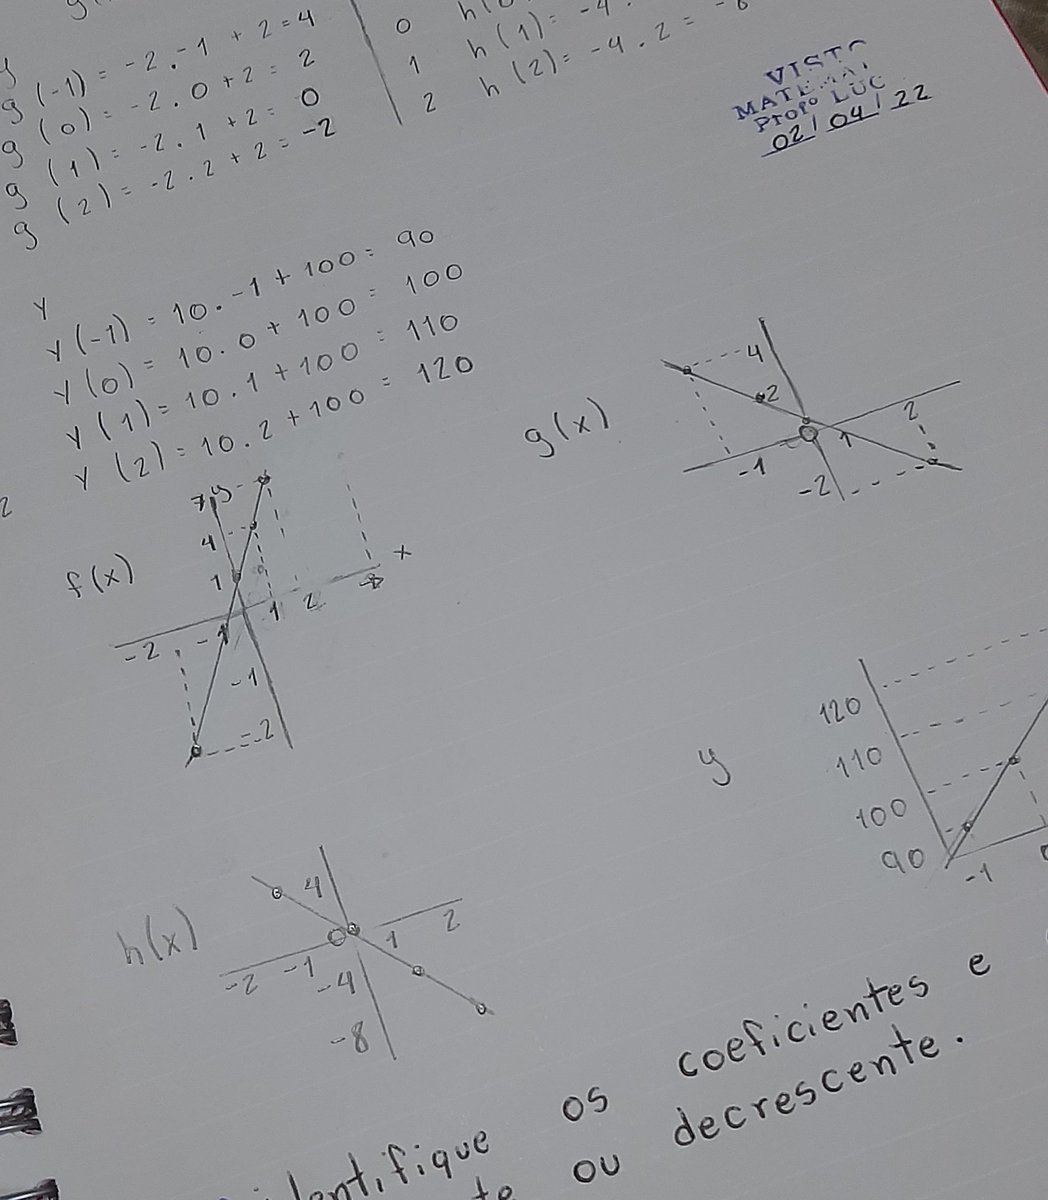 g(-1) = -2.-1 + 2 = 4
g(0) = -2.0+2 = 2
g(1) = -2.1+2 = 0
g(2) = -2.2+2 = -2
0
1 h(1) = -4.
2 h(2) = -4.2 =
VISTO
PROFº LUC
02/04/22
Y
Y(-1) = 10.-1+100 = 90
Y(0) = 10.0+100 = 100
Y(1) = 10.1+100 = 110
Y(2) = 10.2+100 = 120
f(x)
7 y
4
1
-2 -1 1 2 x
-1
-2
g(x)
4
2
-1 0 1 2
-2
y
120
110
100
90
-1
h(x)
4
-2 -1 0 1 2
-4
-8
identifique os coeficientes e
ou decrescente.